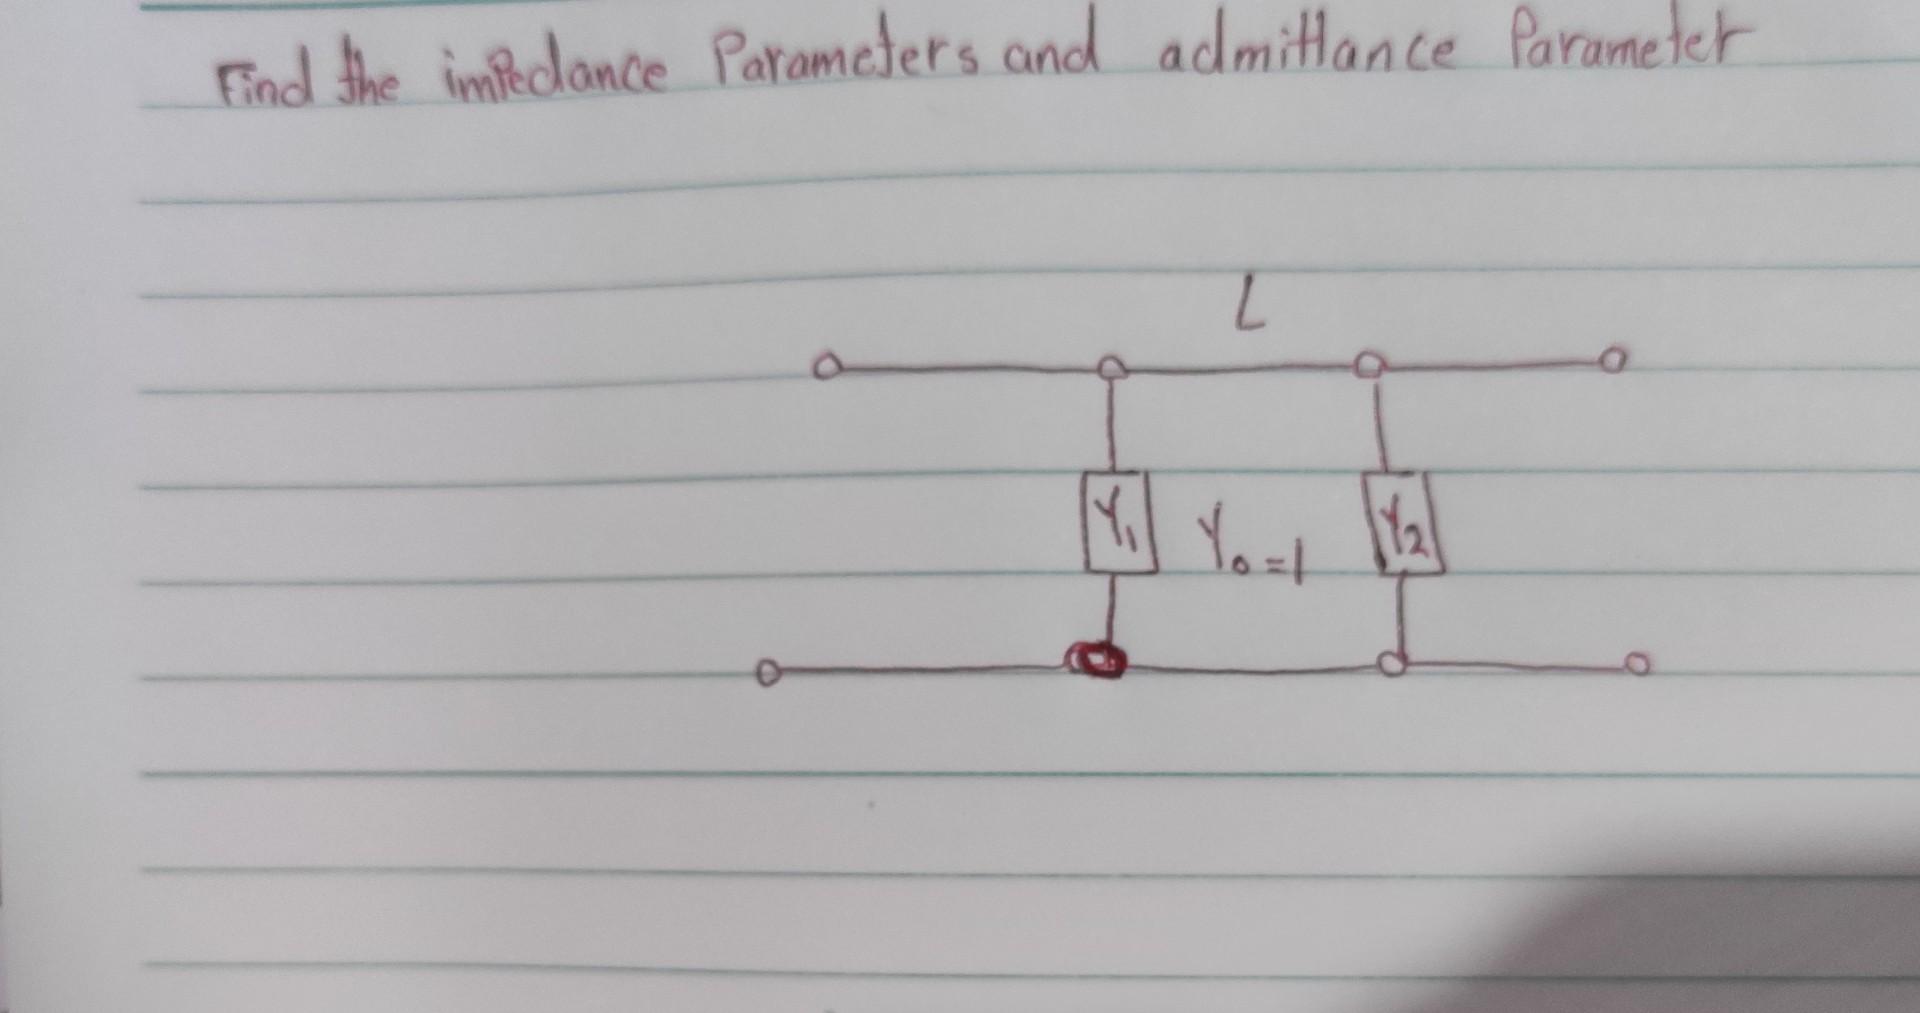 Find the impedance Parameters and admittance Parameter
L
Y1 Y0=1 Y2